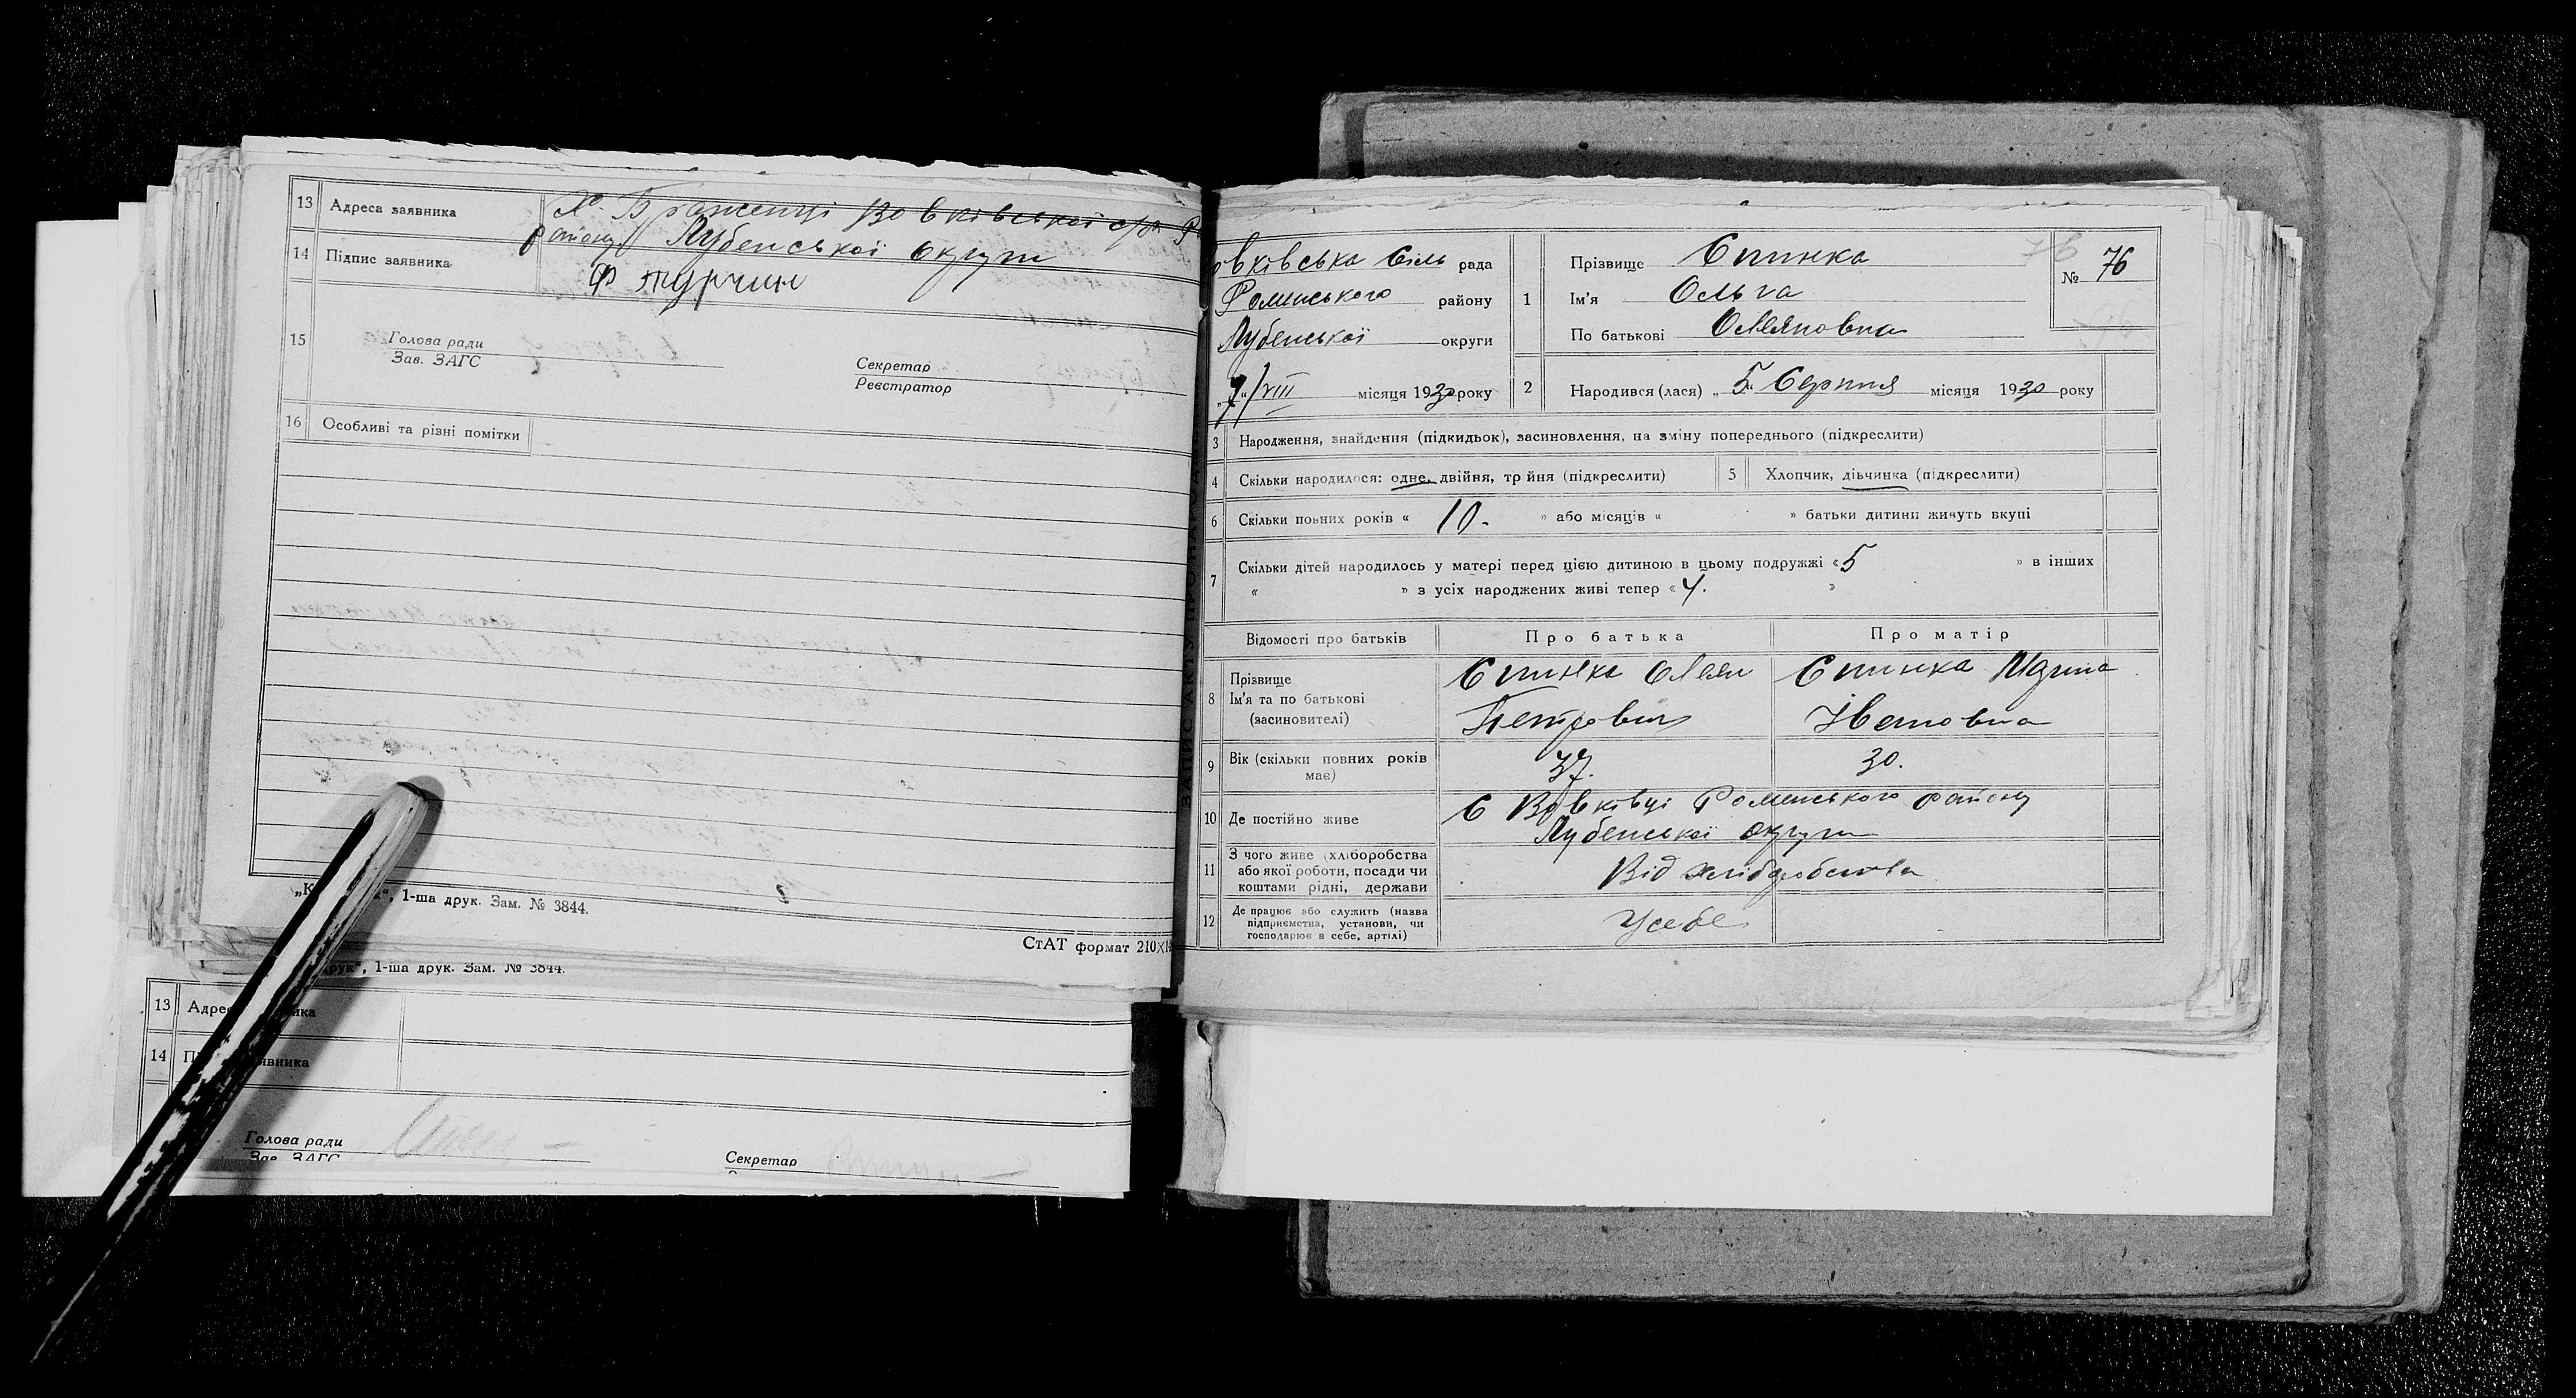 13 Адреса заявника Х. Браженці Вовківської с/р.
району Лубенської округи
14 Підпис заявника Ф Турчин
15 Голова ради
Зав. ЗАГС
Секретар
Реєстратор
16 Особливі та різні помітки
1-ша друк. Зам. № 3844.
СтАТ формат 210×
друк", 1-ша друк. Зам. № 3844.
13
14
Голова ради
Зав. ЗАГС
Секретар
овківська Сіль рада
Роменського району
Лубенської округи
„7“/VIII місяця 1930 року
1 Прізвище Спинка
Ім'я Ольга
По батькові Омеляновна
№ 76
2 Народився (лася) „5“ Серпня місяця 1930 року
3 Народження, знайдення (підкидьок), засиновлення, на зміну попереднього (підкреслити)
4 Скільки народилося: одне, двійня, трійня (підкреслити)
5 Хлопчик, дівчинка (підкреслити)
6 Скільки повних років « 10. » або місяців « » батьки дитини живуть вкупі
7 Скільки дітей народилось у матері перед цією дитиною в цьому подружжі « 5 » в інших
« » з усіх народжених живі тепер « 4. »
Відомості про батьків Про батька Про матір
8 Прізвище
Ім'я та по батькові
(засиновителі)
Спинка Омелян
Петрович
Спинка
Івановна
9 Вік (скільки повних років
має)
37. 30.
10 Де постійно живе С Вовківці Роменського району
Лубенської округи
11 З чого живе (хліборобства
або якої роботи, посади чи
коштами рідні, держави
Від хліборобства
12 Де працює або служить (назва
підприємства, установи, чи
господарює в себе, артілі)
Усебе